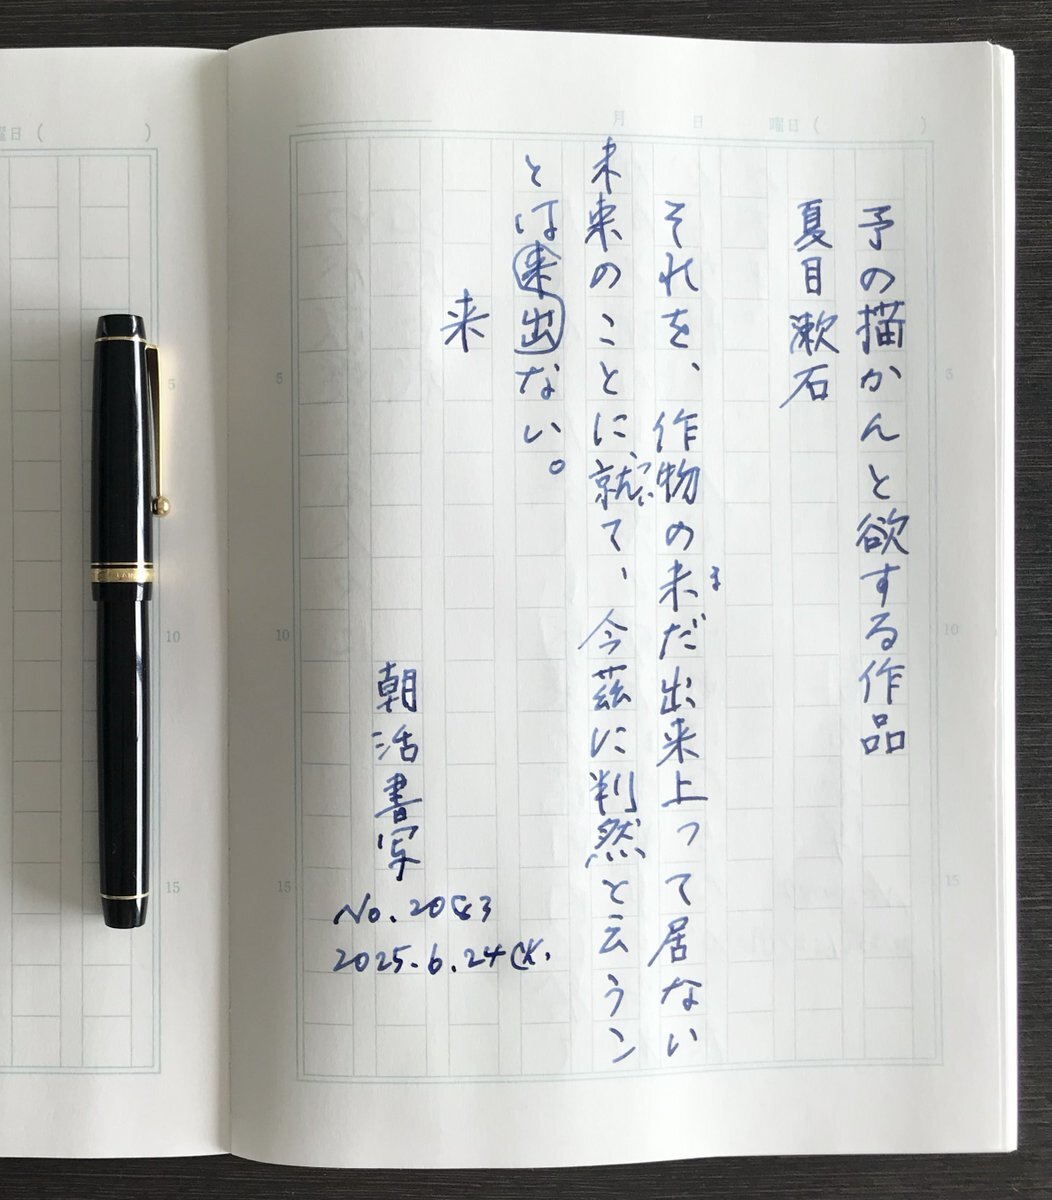 月 日 曜日( )
予の描かんと欲する作品
夏目漱石
それを、作物の未だ出来上って居ない
ま
未来のことに、就て、今茲に判然と云うこ
つい
とは来出ない。
来
朝活書写
No.2083
2025.6.24 CK.
5
10
15
5
10
15
曜日( )
5
10
15